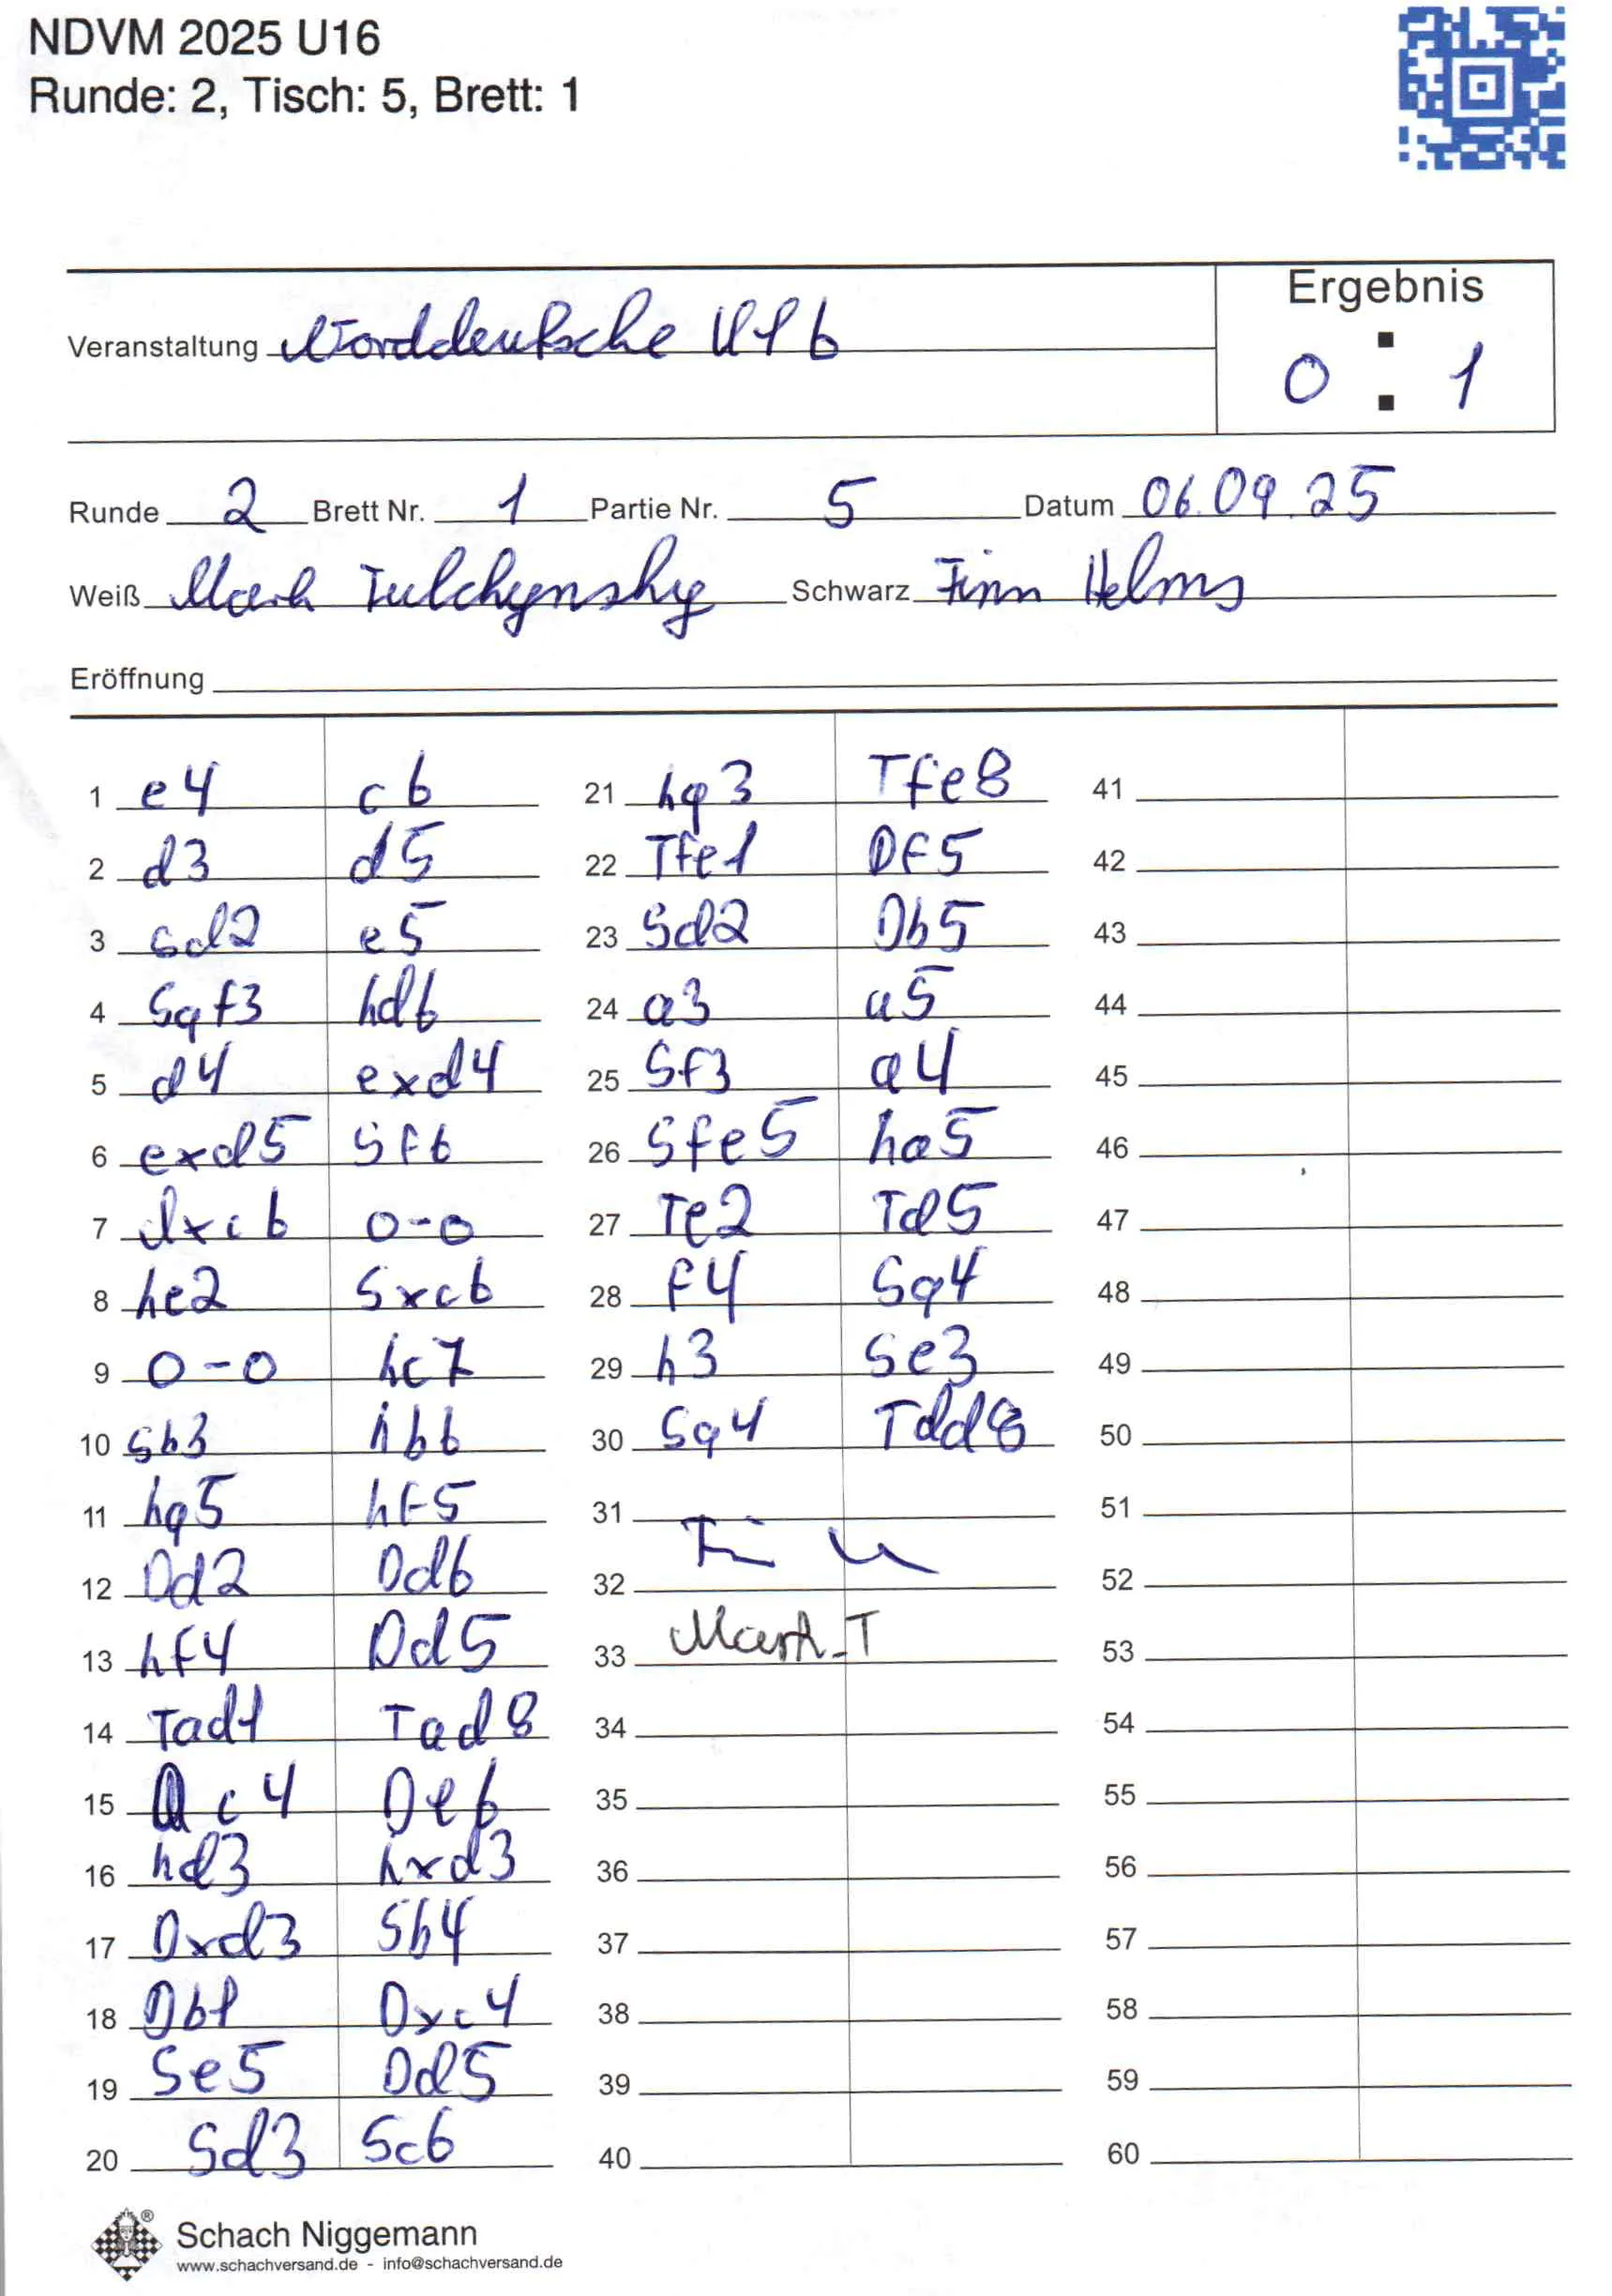 NDVM 2025 U16
Runde: 2, Tisch: 5, Brett: 1
Ergebnis
Veranstaltung Norddeutsche U16
0 : 1
Runde 2 Brett Nr. 1 Partie Nr. 5 Datum 06.09.25
Weiß Mark Tulchynsky Schwarz Finn Helms
Eröffnung
1 e4 c6
2 d3 d5
3 Sd2 e5
4 Sgf3 hd6
5 d4 exd4
6 exd5 Sf6
7 dxc6 0-0
8 he2 Sxc6
9 0-0 hc7
10 Sb3 hb6
11 hg5 hf5
12 Dd2 Dd6
13 hf4 Dd5
14 Tad1 Tad8
15 c4 De6
16 hd3 hxd3
17 Dxd3 Sb4
18 Db1 Dxc4
19 Se5 Dd5
20 Sd3 Sc6
21 hg3 Tfe8
22 Tfe1 Df5
23 Sd2 Db5
24 a3 a5
25 Sf3 a4
26 Sfe5 ha5
27 Te2 Td5
28 f4 Sg4
29 h3 Se3
30 Sg4 Tdd8
31
32
33 Mark T
34
35
36
37
38
39
40
41
42
43
44
45
46
47
48
49
50
51
52
53
54
55
56
57
58
59
60
®
Schach Niggemann
www.schachversand.de - info@schachversand.de